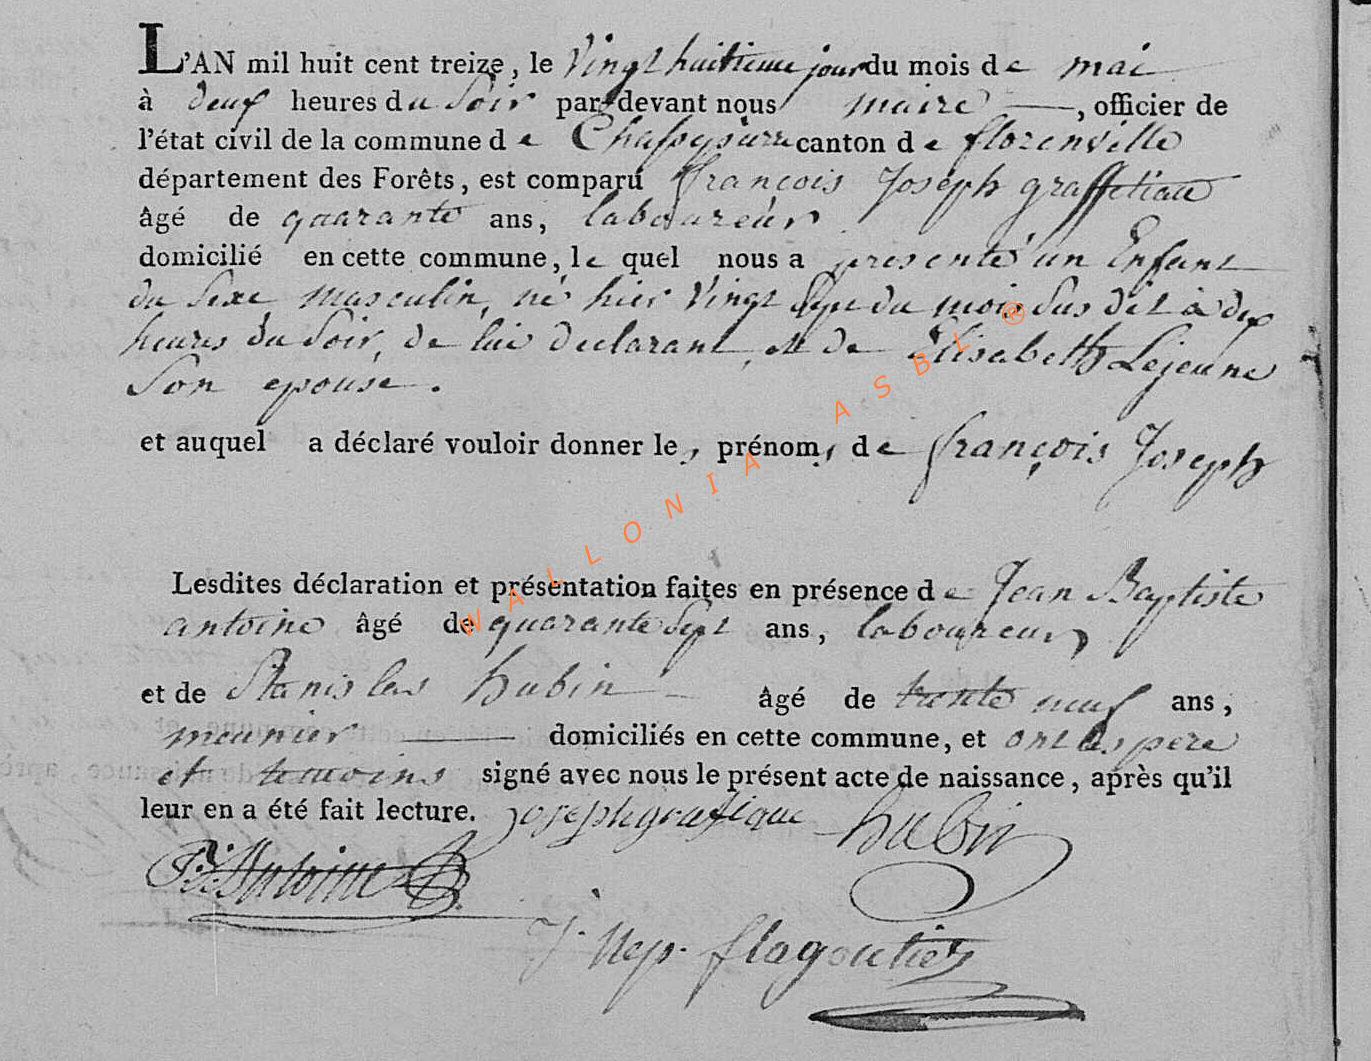 L'AN mil huit cent treize, le Vingt huitieme jour du mois de mai
à deux heures du Soir par-devant nous maire, officier de
l'état civil de la commune de Chassepierre canton de florenville
département des Forêts, est comparu françois Joseph graffetiau
âgé de quarante ans, laboureur
domicilié en cette commune, le quel nous a presenté un Enfant
du Sexe masculin, né hier Vingt Sept du mois Sus dit à deux
heures du Soir, de lui declarant, et de Elisabeth Lejeune
Son epouse.
et auquel a déclaré vouloir donner les prénoms de françois Joseph
Lesdites déclaration et présentation faites en présence de Jean Baptiste
antoine âgé de quarante Sept ans, laboureur,
et de Stanislas hubin âgé de trente neuf ans,
meunier domiciliés en cette commune, et ont les pere
et temoins signé avec nous le présent acte de naissance, après qu'il
leur en a été fait lecture. joseph grafique hubin
Antoine
J. Nep. flagoutier
WALLONIA ASBL ®